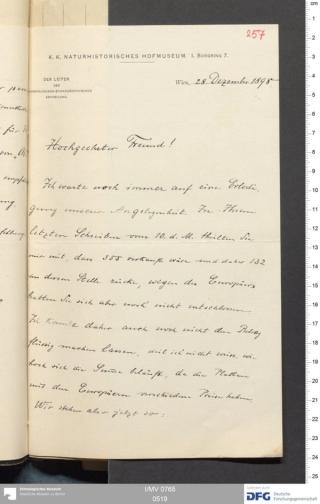 257
K. K. NATURHISTORISCHES HOFMUSEUM I. BURGRING 7.
DER LEITER
DER
ETHNOGRAPHISCHEN
Wien, 28. Dezember 1898
Hochgeehrter Freund!
Ich warte noch immer auf eine Erledi-
gung unserer Angelegenheit. In Ihrem
letzten Schreiben vom 10. d. M. theilten Sie
mir mit, dass 358 verkauft wäre und daher 132
an deren Stelle rücke, wegen des Europäers
hatten Sie sich aber noch nicht entschlossen.
Ich konnte daher auch noch nicht den Betrag
flüssig machen lassen, weil ich nicht weiss, wie
hoch sich die Summe beläuft, da die Platten
mit den Europäern verschiedene Preise haben.
Wir stehen aber jetzt vor
I/MV 0765
0519
Ethnologisches Museum
Staatliche Museen zu Berlin
DFG
Deutsche
Forschungsgemeinschaft